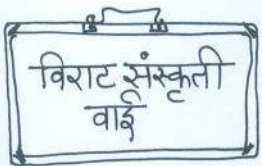 विराट संस्कृती
वाई